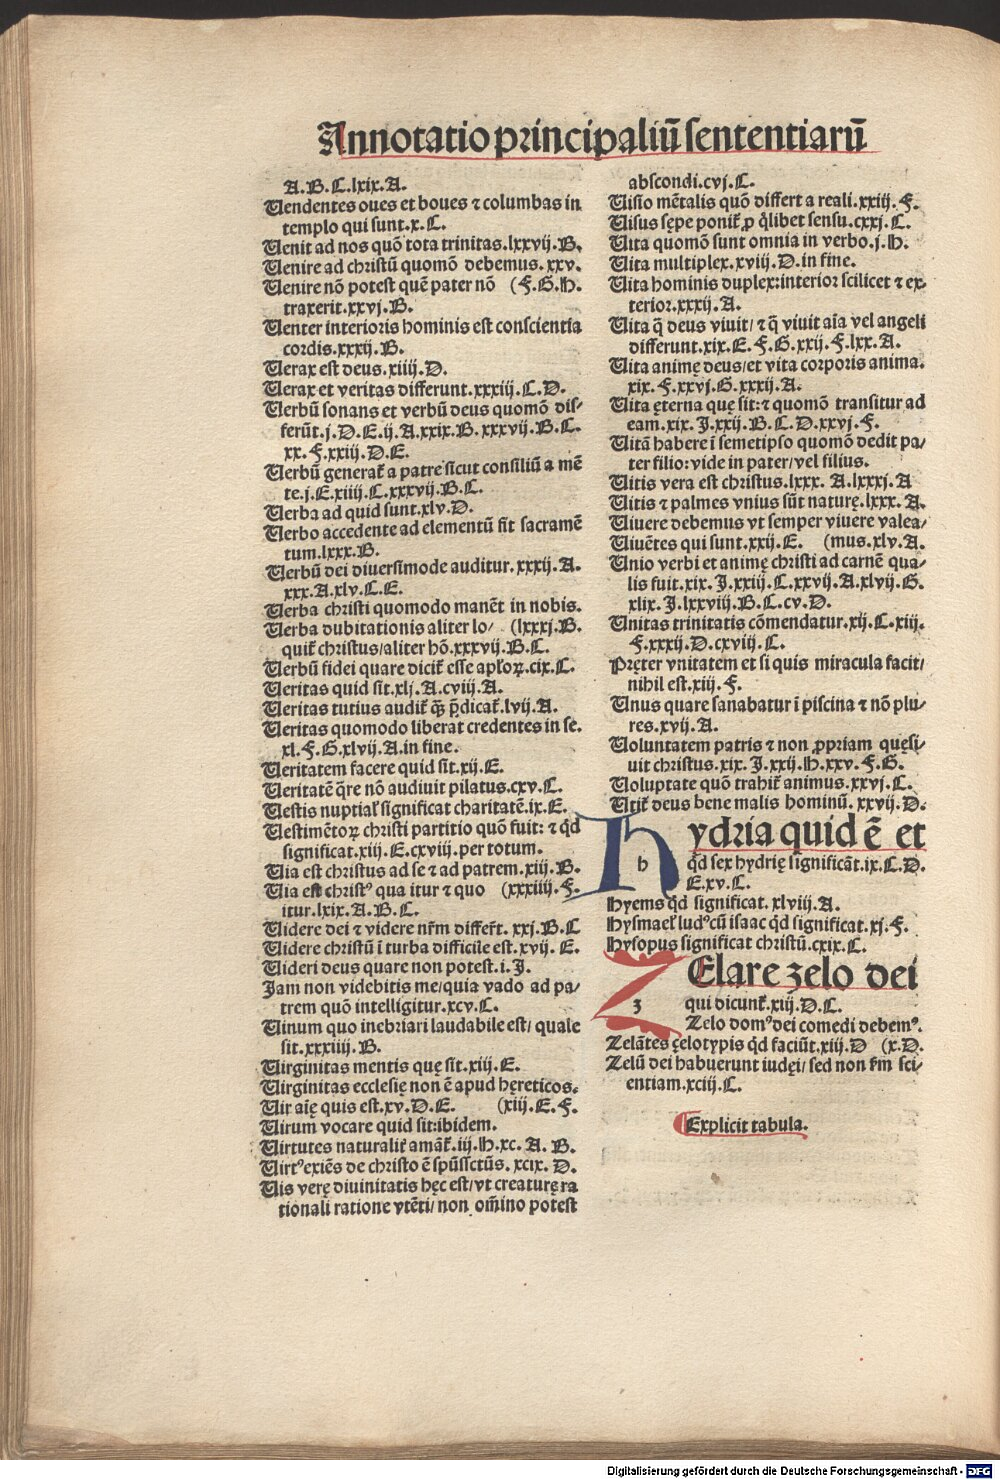 Annotatio principaliū sententiarū
A.B.C.lxix.A.
Uendentes oues et boues ⁊ columbas in
templo qui sunt.x.C.
Uenit ad nos quō tota trinitas.lxxvij.B.
Uenire ad christū quomō debemus.xxv.
Uenire nō potest quē pater nō (F.G.H.
traxerit.xxvj.B.
Uenter interioris hominis est conscientia
cordis.xxxij.B.
Uerax est deus.xiiij.D.
Uerax et veritas differunt.xxxiij.C.D.
Uerbū sonans et verbū deus quomō dif/
ferūt.j.D.E.ij.A.xxix.B.xxxvij.B.C.
xx.F.xxiij.D.E.
Uerbū generat̃ a patre sicut consiliū a mē
te.j.E.xiiij.C.xxxvij.B.C.
Uerba ad quid sunt.xlv.D.
Uerbo accedente ad elementū fit sacramē
tum.lxxx.B.
Uerbū dei diuersimode auditur.xxxij.A.
xxx.A.xlv.C.E.
Uerba christi quomodo manēt in nobis.
Uerba dubitationis aliter lo/ (lxxxj.B.
quit̃ christus/aliter hō.xxxvij.B.C.
Uerbū fidei quare dicit̃ esse apl'oꝝ.cix.C.
Ueritas quid sit.xlj.A.cviij.A.
Ueritas tutius audit̃ q̃ꝫ p̄dicat̃.lvij.A.
Ueritas quomodo liberat credentes in se.
xl.F.G.xlvij.A.in fine.
Ueritatem facere quid sit.xij.E.
Ueritatē q̄re nō audiuit pilatus.cxv.C.
Uestis nuptial' significat charitatē.ix.E.
Uestimētoꝝ christi partitio quō fuit: ⁊ qd̄
significat.xiij.E.cxviij.per totum.
Uia est christus ad se ⁊ ad patrem.xiij.B.
Uia est christ⁹ qua itur ⁊ quo (xxxiiij.F.
itur.lxix.A.B.C.
Uidere dei ⁊ videre nr̄m differt̃.xxj.B.C
Uidere christū ī turba difficile est.xvij.E.
Uideri deus quare non potest.i.J.
Jam non videbitis me/quia vado ad pa/
trem quō intelligitur.xcv.C.
Uinum quo inebriari laudabile est/ quale
sit.xxxiiij.B.
Uirginitas mentis quę sit.xiij.E.
Uirginitas ecclesię non ē apud hęreticos.
Uir aīę quis est.xv.D.E. (xiij.E.F.
Uirum vocare quid sit:ibidem.
Uirtutes naturalit̃ amāt̃.iij.H.xc.A.B.
Uirt⁹exiēs de christo ē spūssctūs.xcix.D.
Uis verę diuinitatis hęc est/vt creaturę ra
tionali ratione vtēti/non om̄ino potest
abscondi.cvj.C.
Uisio mētalis quō differt a reali.xxiij.F.
Uisus sępe ponit̃ ꝓ q̄libet sensu.cxxj.C.
Uita quomō sunt omnia in verbo.j.H.
Uita multiplex.xviij.D.in fine.
Uita hominis duplex:interior scilicet ⁊ ex
terior.xxxij.A.
Uita q̄ deus viuit/ ⁊ q̄ viuit aīa vel angeli
differunt.xix.E.F.G.xxij.F.lxx.A.
Uita animę deus/et vita corporis anima.
xix.F.xxvj.G.xxxij.A.
Uita ęterna quę sit:⁊ quomō transitur ad
eam.xix.J.xxij.B.C.D.xxvj.F.
Uitā habere ī semetipso quomō dedit pa/
ter filio:vide in pater/vel filius.
Uitis vera est christus.lxxx.A.lxxxj.A
Uitis ⁊ palmes vnius sūt naturę.lxxx.A.
Uiuere debemus vt semper viuere valea/
Uiuētes qui sunt.xxij.E. (mus.xlv.A.
Unio verbi et animę christi ad carnē qua/
lis fuit.xix.J.xxiij.C.xxvij.A.xlvij.G.
xlix.J.lxxviij.B.C.cv.D.
Unitas trinitatis cōmendatur.xij.C.xiij.
F.xxxij.D.cxviij.C.
Pręter vnitatem et si quis miracula facit/
nihil est.xiij.F.
Unus quare sanabatur ī piscina ⁊ nō plu/
res.xvij.A.
Uoluntatem patris ⁊ non ꝓpriam quęsi/
uit christus.xix.J.xxij.H.xxv.F.G.
Uoluptate quō trahit̃ animus.xxvj.C.
Utit̃ deus bene malis hominū.xxvij.D.
Hydria quid ē et
qd̄ sex hydrię significāt.ix.C.D.
E.xv.C.
Hyems qd̄ significat.xlviij.A.
Hysmael lud⁹cū isaac qd̄ significat.xj.F.
Hysopus significat christū.cxix.C.
ZElare zelo dei
qui dicunt̃.xiij.D.C.
Zelo dom⁹dei comedi debem⁹.
Zelātes ęelotypis qd̄ faciūt.xiij.D (x.D.
Zelū dei habuerunt iudęi/ sed non s̄m sci/
entiam.xciij.C.
Explicit tabula.
Digitalisierung gefördert durch die Deutsche Forschungsgemeinschaft - DFG